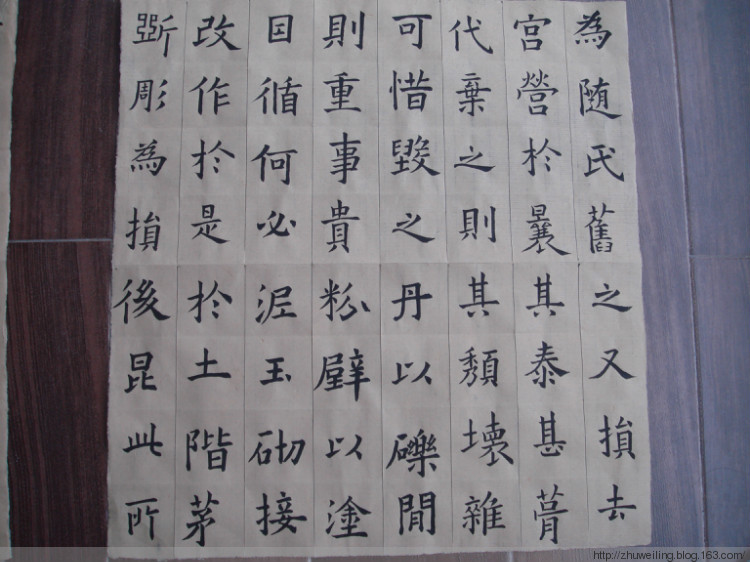 為随氏舊之又損去
宮營於曩其泰甚葺
代棄之則其頹壞雜
可惜毀之丹以礫閒
則重事貴粉壁以塗
因循何必泥玉砌接
改作於是於土階茅
斲彫為損後昆此所
http://zhuweiling.blog.163.com/